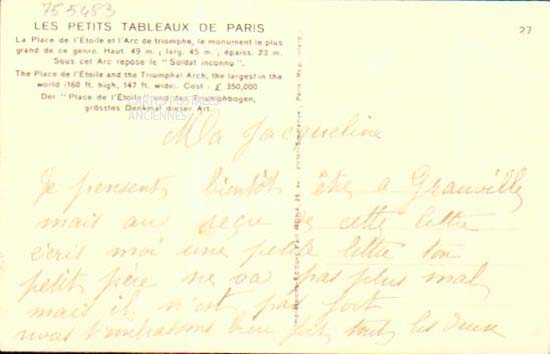 755483
LES PETITS TABLEAUX DE PARIS
27
La Place de l'Étoile et l'Arc de triomphe, le monument le plus
grand de ce genre. Haut. 49 m.; larg. 45 m.; épaiss. 23 m.
Sous cet Arc repose le "Soldat inconnu".
The Place de l'Étoile and the Triumphal Arch, the largest in the
world (160 ft. high, 147 ft. wide). Cost: £ 350,000.
Der "Place de l'Étoile" und der Triumphbogen,
grösstes Denkmal dieser Art.
ANCIENNES
Ma Jacqueline
Je pensent bientôt être a Granville
mais au reçu de cette lettre
écris moi une petite lettre ton
petit père ne va pas plus mal
mais il n'est pas fort
nous t'embrassons bien fort tout les deux